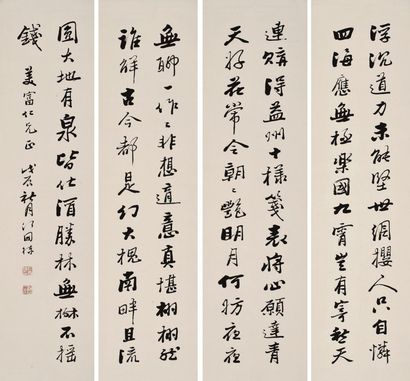 浮沉道力未能堅世網攖人只自憐
四海應無極樂國九霄豈有寄愁天
連購得益州十樣箋表將心願達青
天好花常令朝〻艷明月何妨夜夜
無聊一作〻非想適意真堪栩栩然
誰解古今都是幻大槐南畔且流
圓大地有泉皆化酒勝林無樹不搖
錢
美富仁兄正 戊辰秋月